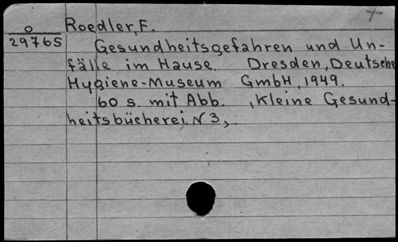 O
29765
Roedler, F.
Gesundheitsgefahren und Un-
fälle im Hause. Dresden, Deutsche
Hygiene-Museum GmbH, 1949.
60 s. mit Abb. , Kleine Gesund-
heitsbücherei. N 3,.